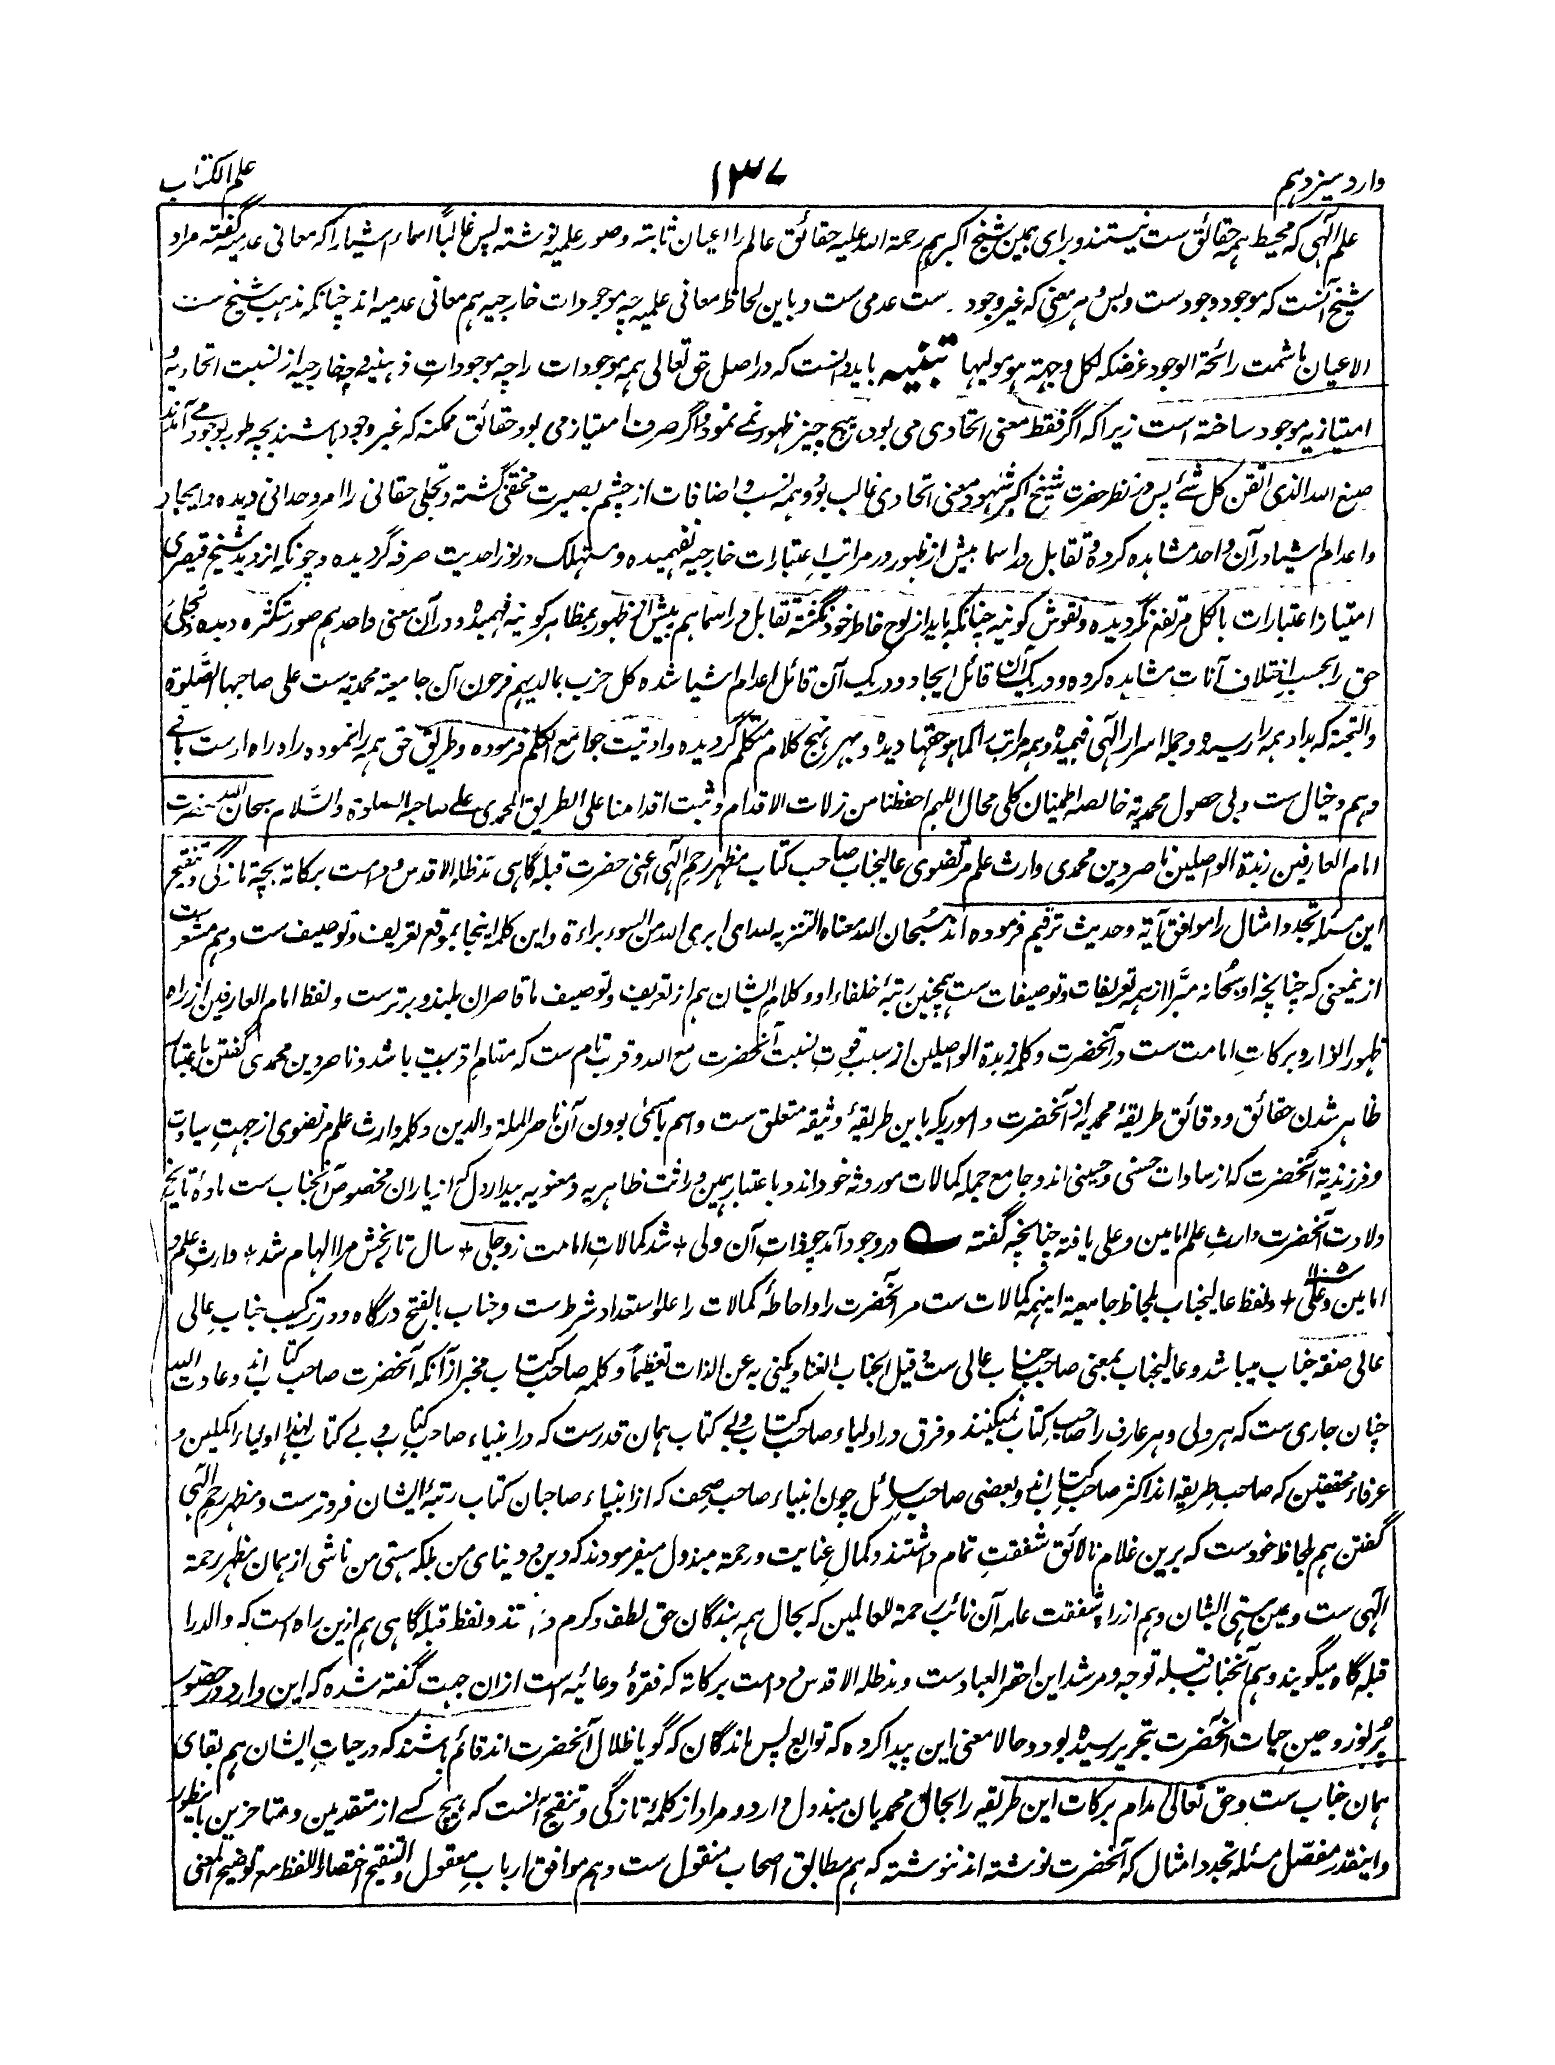 وارد سیزدهم
۱۳۷
علم الکتاب
علم الٰہی که محیط ہمه حقائق ست نیستند و برای ہمین شیخ اکبر ہم رحمة الله علیه حقائق عالم را اعیان ثابته و صور علمیه نوشته پس غالباً اسماء اشیا را که معانی عدمیه گفته مراد
شیخ آنست که موجود وجود ست و بس و ہر معنی که غیر وجود ست عدمی ست و باین لحاظ معانی علمیه چه موجودات خارجیه ہم معانی عدمیه اند چنانکه مذہب شیخ ست
الاعیان ما شمت رائحة الوجود غرضکه لکل وجهة هو مولیها تنبیه باید دانست که در اصل حق تعالی ہمه موجودات را چه موجودات ذہنیه و چه خارجیه از نسبت اتحادیه و
امتیازیه موجود ساخته است زیرا که اگر فقط معنی اتحادی می بود ہیچ چیز ظہور نمی نمود و اگر صرف امتیاز می بود حقائق ممکنه که غیر وجود باشند بچه طور بوجود می آمدند
صنع الله الذی اتقن کل شئ پس در نظر حضرت شیخ اکبر شہود معنی اتحادی غالب بود و ہمه نسب و اضافات از چشم بصیرت مختفی گشته و تجلی حقانی را امر وحدانی دیده و ایجاد
و اعدام اشیا در آن واحد مشاہده کرده و تقابل در اسما پیش از ظہور در مراتب اعتبارات خارجیه نفہمیده و مستہلک در نور احدیت صرفه گردیده و چونکه از دید شیخ قیصری
امتیاز اعتبارات بالکل مرتفع نگردیده و نقوش کونیه چنانکه باید از لوح خاطر خود نگشته تقابل در اسما ہم پیش از ظہور بمظاہر کونیه فہمیده و در آن معنی واحد ہم صور متکثره دیده و تجلی
حق را بحسب اختلاف آنات مشاہده کرده و در یک آن قائل ایجاد و در یک آن قائل اعدام اشیا شده کل حزب بما لدیهم فرحون آن جامعیة محمدیه ست علی صاحبہا الصلوة
والتحیة که بداد ہمه را رسیده و جمله اسرار الٰہی فہمیده و ہمه مراتب را کما ہو حقہا دیده و بہر نہج کلام متکلم گردیده و اوتیت جوامع الکلم فرموده و طریق حق ہمه را نموده راه راه اوست باقی
وہم و خیال ست و بی حصول محمدیه خالصه اطمینان کلی محال اللهم احفظنا من زلات الاقدام و ثبت اقدامنا علی الطریق المحمدی علی صاحبه الصلوة والسلام سبحان الله حضرت
امام العارفین زبدة الواصلین ناصر دین محمدی وارث علم مرتضوی عالیجناب صاحب کتاب مظہر رحم الٰہی اعنی حضرت قبله گاہی مد ظله الاقدس و دامت برکاته بچه تازگی و تنقیح
این مسئله تجدد امثال را موافق آیة و حدیث ترقیم فرموده اند سبحان الله معناه التنزیه لله ای ابری الله من السوء براءة و این کلمه اینجا بموقع تعریف و توصیف ست و ہم مشعر ست
ازینمعنی که چنانچه او سبحانه مبرا از ہمه تعریفات و توصیفات ست ہمچنین رتبهٔ خلفاء او و کلام ایشان ہم از تعریف و توصیف ما قاصران بلند و برتر ست و لفظ امام العارفین از راه
ظہور انوار و برکات امامت ست در آنحضرت و کلمه زبدة الواصلین از سبب قوت نسبت آنحضرت مع الله و قرب تام ست که مقام اقربیت باشد و ناصر دین محمدی گفتن باعتبار
ظاہر شدن حقائق و دقائق طریقهٔ محمدیه از آنحضرت و اموریکه باین طریقهٔ وثیقه متعلق ست و اسم بامسمیٰ بودن آن ناصر الملة والدین و کلمه وارث علم مرتضوی از جہت سیادت
و فرزندیهٔ آنحضرت که از سادات حسنی و حسینی اند و جامع جمله کمالات موروثه خود اند و باعتبار ہمین وراثت ظاہریه و معنویه بیدار دل که از یاران مخصوص آنجناب ست مادهٔ تاریخ
ولادت آنحضرت وارث علم امامین و علی یافته چنانچه گفته در وجود آمد چو ذات آن ولی + شد کمالات امامت زو جلی + سال تاریخش مرا الہام شد + وارث علم
امامین و علی + و لفظ عالیجناب بلحاظ جامعیة اینہمه کمالات ست مر آنحضرت را و احاطهٔ کمالات را علو استعداد شرط ست و جناب بالفتح درگاه و در ترکیب جناب عالی
عالی صفة جناب میباشد و عالیجناب بمعنی صاحب جناب عالی ست و قیل الجناب الفناء و یکنی به عن الذات تعظیماً و کلمه صاحب کتاب مخبر از آنکه آنحضرت صاحب کتاب اند و عادت الله
چنان جاری ست که ہر ولی و ہر عارف را صاحب کتاب نمیکنند و فرق در اولیاء صاحب کتاب و بے کتاب ہمان قدر ست که در انبیاء صاحب کتاب و بے کتاب لہذا اولیاء اکملین و
عرفاء محققین که صاحب طریقه اند اکثر صاحب کتاب اند و بعضی صاحب رسائل چون انبیاء صاحب صحف که از انبیاء صاحبان کتاب رتبهٔ ایشان فروتر ست و مظہر رحم الٰہی
گفتن ہم بلحاظ خود ست که برین غلام نالائق شفقت تمام داشتند و کمال عنایت و رحمة مبذول میفرمودند که دین و دنیای من بلکه ہستی من ناشی از ہمان مظہر رحمة
الٰہی ست و عین ہستی ایشان و ہم از راه شفقت عامه آن نائب رحمة للعالمین که بحال ہمه بندگان حق لطف و کرم داشتند و لفظ قبله گاہی ہم ازین راه ست که والد را
قبله گاه میگویند و ہم آنجناب قبله توجه و مرشد این احقر العباد ست و مد ظله الاقدس و دامت برکاته که فقرهٔ دعائیه است از ان جہت گفته شده که این وارد در حضور
پر نور و حین حیات آنحضرت بتحریر رسیده بود و حالا معنی این پیدا کرده که توابع پس ماندگان که گویا ظلال آنحضرت اند قائم باشند که در حیات ایشان ہم بقای
ہمان جناب ست و حق تعالی مدام برکات این طریقه را بحال محمدیان مبذول دارد و مراد از کلمهٔ تازگی و تنقیح آنست که ہیچ کسے از متقدمین و متاخرین باین طور
و اینقدر مفصل مسئله تجدد امثال که آنحضرت نوشته اند ننوشته که ہم مطابق اصحاب منقول ست و ہم موافق ارباب معقول و التنقیح اختصار اللفظ مع توضیح المعنی